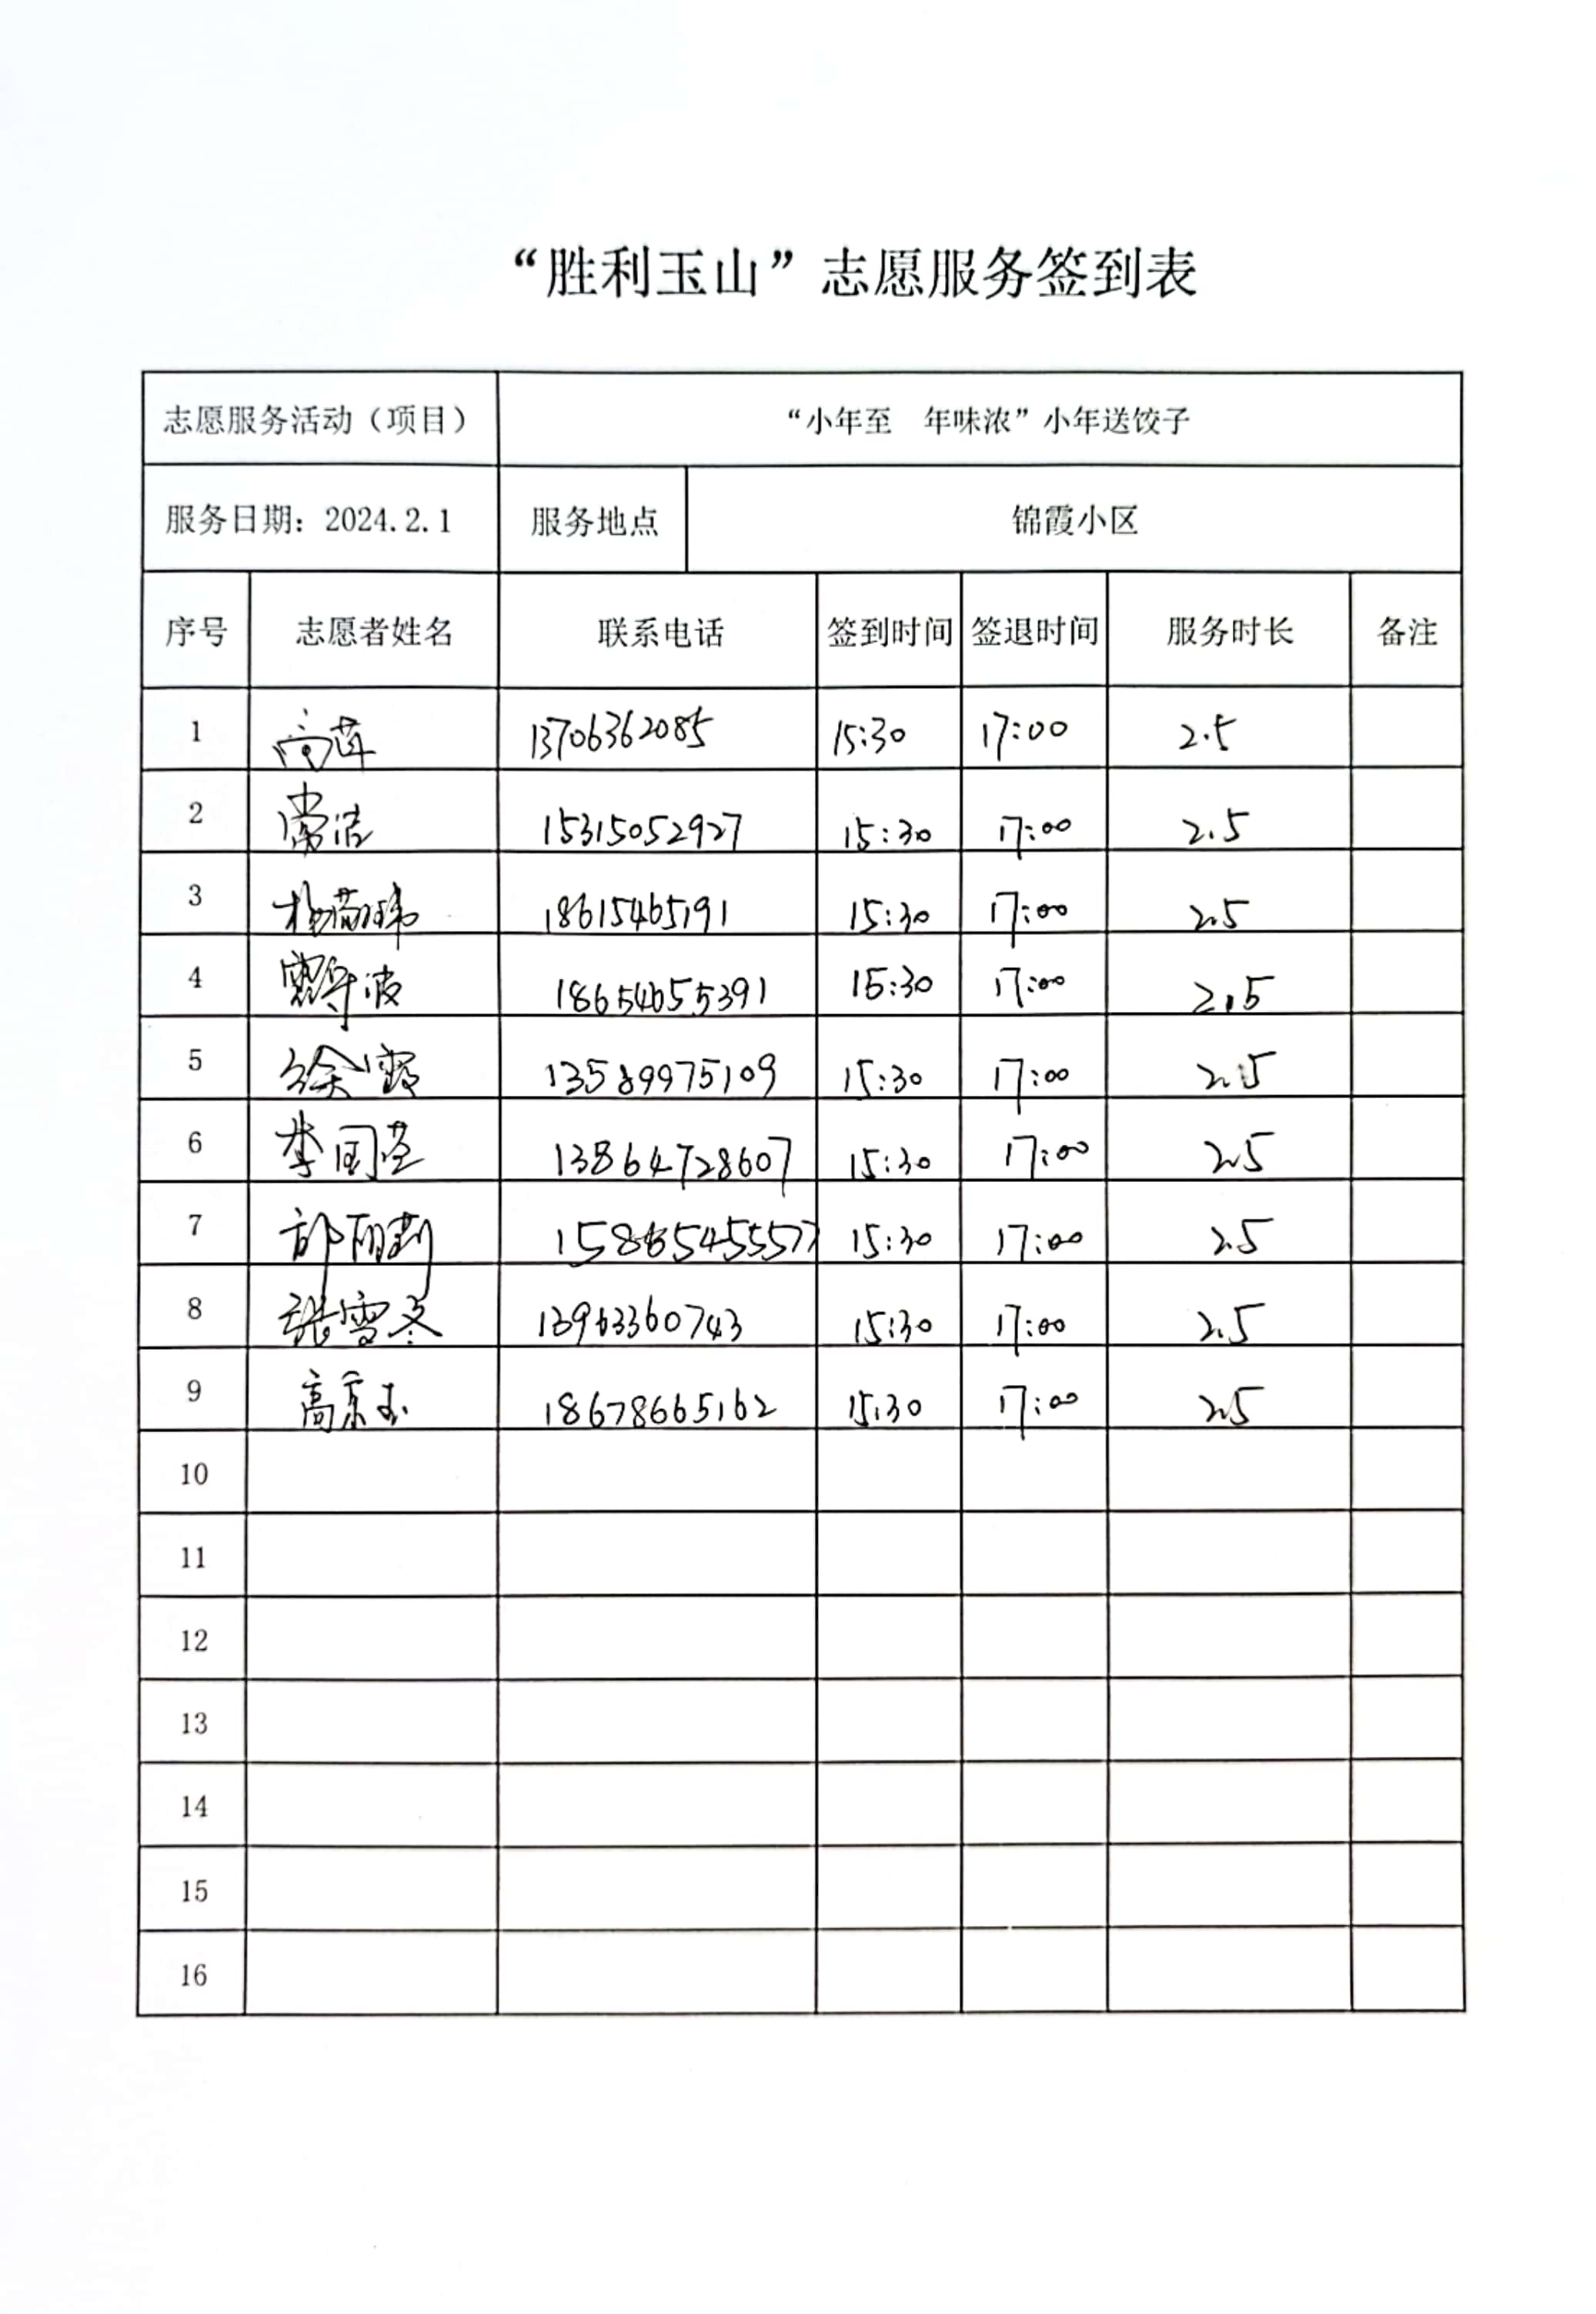 “胜利玉山”志愿服务签到表
志愿服务活动（项目） “小年至 年味浓”小年送饺子
服务日期：2024.2.1 服务地点 锦霞小区
序号 志愿者姓名 联系电话 签到时间 签退时间 服务时长 备注
1 高萍 13706362085 15:30 17:00 2.5
2 常洁 15315052927 15:30 17:00 2.5
3 18615465191 15:30 17:00 2.5
4 18654655391 15:30 17:00 2.5
5 徐霞 13589975109 15:30 17:00 2.5
6 李国芝 13864728607 15:30 17:00 2.5
7 15:30 17:00 2.5
8 张雪冬 13963360743 15:30 17:00 2.5
9 高京玉 18678665162 15:30 17:00 2.5
10
11
12
13
14
15
16